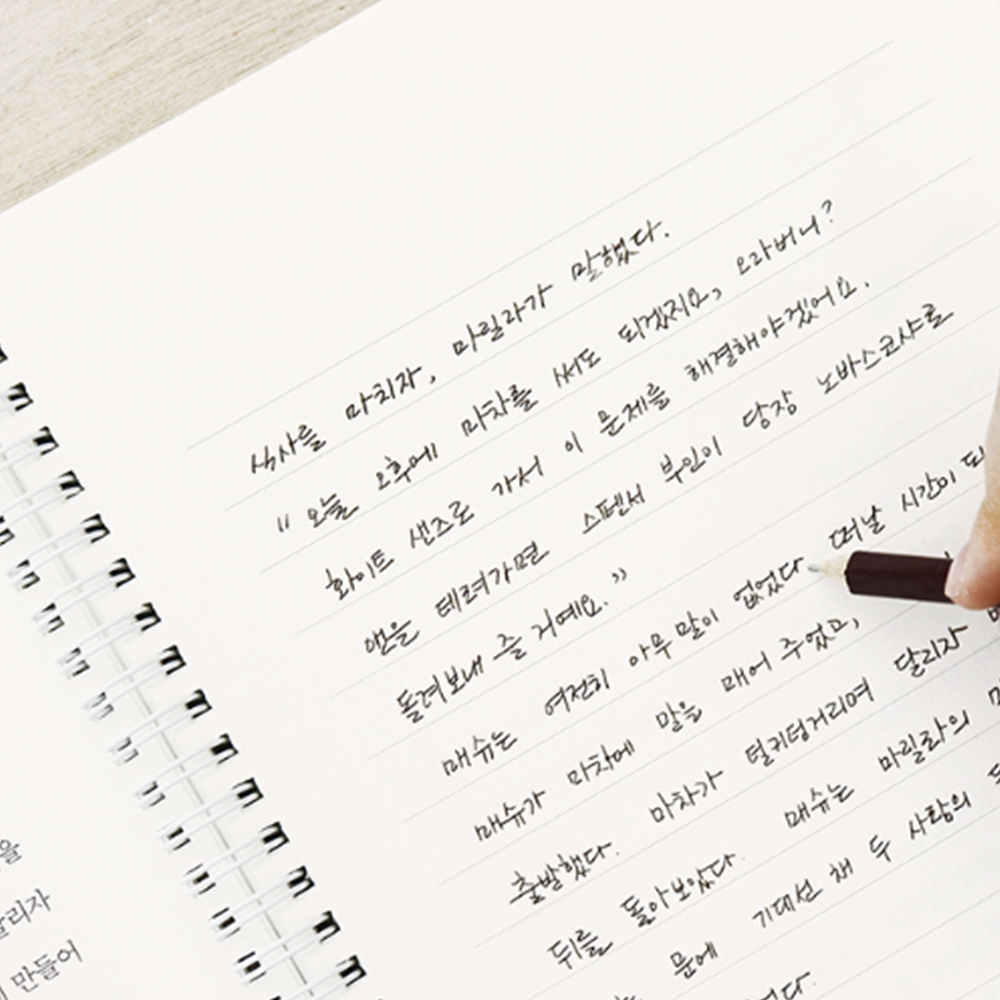 을
달리자
만들어
식사를 마치자, 마릴라가 말했다.
"오늘 오후에 마차를 써도 되겠지요, 오라버니?
화이트 샌즈로 가서 이 문제를 해결해야겠어요.
앤을 데려가면 스펜서 부인이 당장 노바스코샤로
돌려보내 줄 거예요."
매슈는 여전히 아무 말이 없었다 떠날 시간이 되
매슈가 마차에 말을 매어 주었고,
출발했다. 마차가 덜커덩거리며 달리자
뒤를 돌아보았다. 매슈는 마릴라의
문에 기대선 채 두 사람의